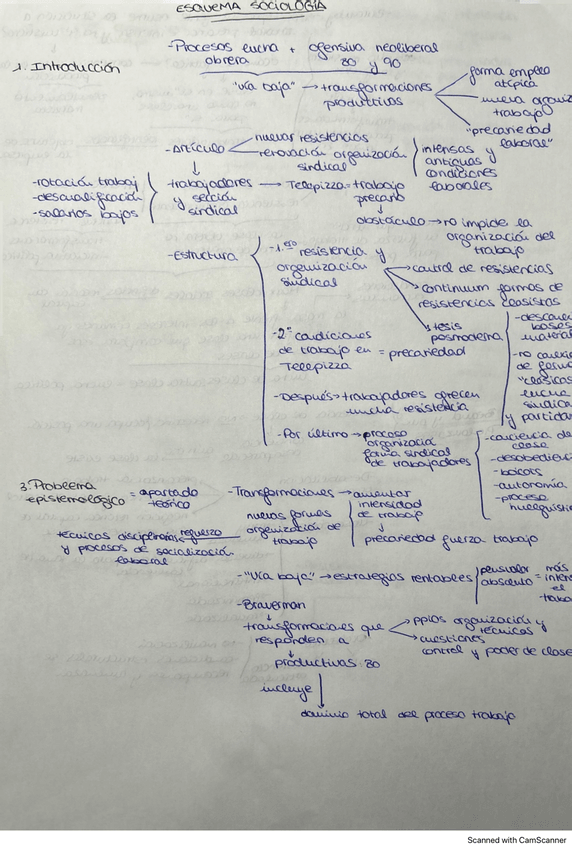 ESQUEMA SOCIOLOGÍA
1. Introducción
-Procesos lucha + ofensiva neoliberal
obrera 80 y 90
"vía baja" → transformaciones
productivas
forma empleo
atípica
nueva
trabajo
"precariedad
laboral"
-Artículo
nuevas resistencias
renovación organización
sindical
intensas y
antiguas
condiciones
laborales
-rotación trabaj
-descualificación
-salarios bajos
trabajadores — Telepizza = trabajo
y sección precario
sindical
obstáculo → no impide la
organización del
trabajo
-Estructura
-1º resistencia y
organización
sindical
control de resistencias
continuum formas de
resistencias
tesis
posmoderna
no
de
"clásicas
lucha
y
-2º condiciones
de trabajo en = precariedad
Telepizza
-Después → trabajadores ofrecen
lucha resistencia
-Por último → proceso
organización
forma sindical
de trabajadores
-conciencia de
clase
-boicots
-autonomía
-proceso
3. Problema
epistemológico = apartado
teórico
-Transformaciones → aumentar
intensidad
de trabajo
nuevas formas
organización de
trabajo
precariedad fuerza trabajo
técnicas refuerzo
y procesos de socialización
laboral
-"Vía baja" → estrategias rentables
plusvalor = más
absoluto
el
-Braverman
transformaciones que
responden a
ppios organización y
técnicas
cuestiones
control y poder de clase
productivas 80
incluye
dominio total del proceso trabajo
Scanned with CamScanner